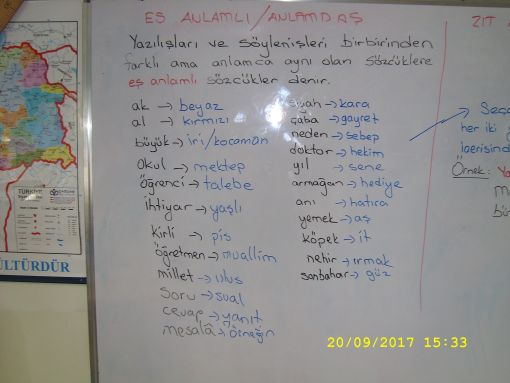 EŞ ANLAMLI/ANLAMDAŞ
Yazılışları ve söylenişleri birbirinden
farklı ama anlamca aynı olan sözcüklere
eş anlamlı sözcükler denir.
ak → beyaz
al → kırmızı
büyük → iri/kocaman
Okul → mektep
öğrenci → talebe
ihtiyar → yaşlı
kirli → pis
öğretmen → muallim
millet → ulus
Soru → sual
cevap → yanıt
mesala → örneğin
siyah → kara
çaba → gayret
neden → sebep
doktor → hekim
yıl → sene
armağan → hediye
anı → hatıra
yemek → aş
köpek → it
nehir → ırmak
sonbahar → güz
ZIT
her iki
içerisinde
Örnek:
TÜRKİYE
ÜLTÜRDÜR
20/09/2017 15:33